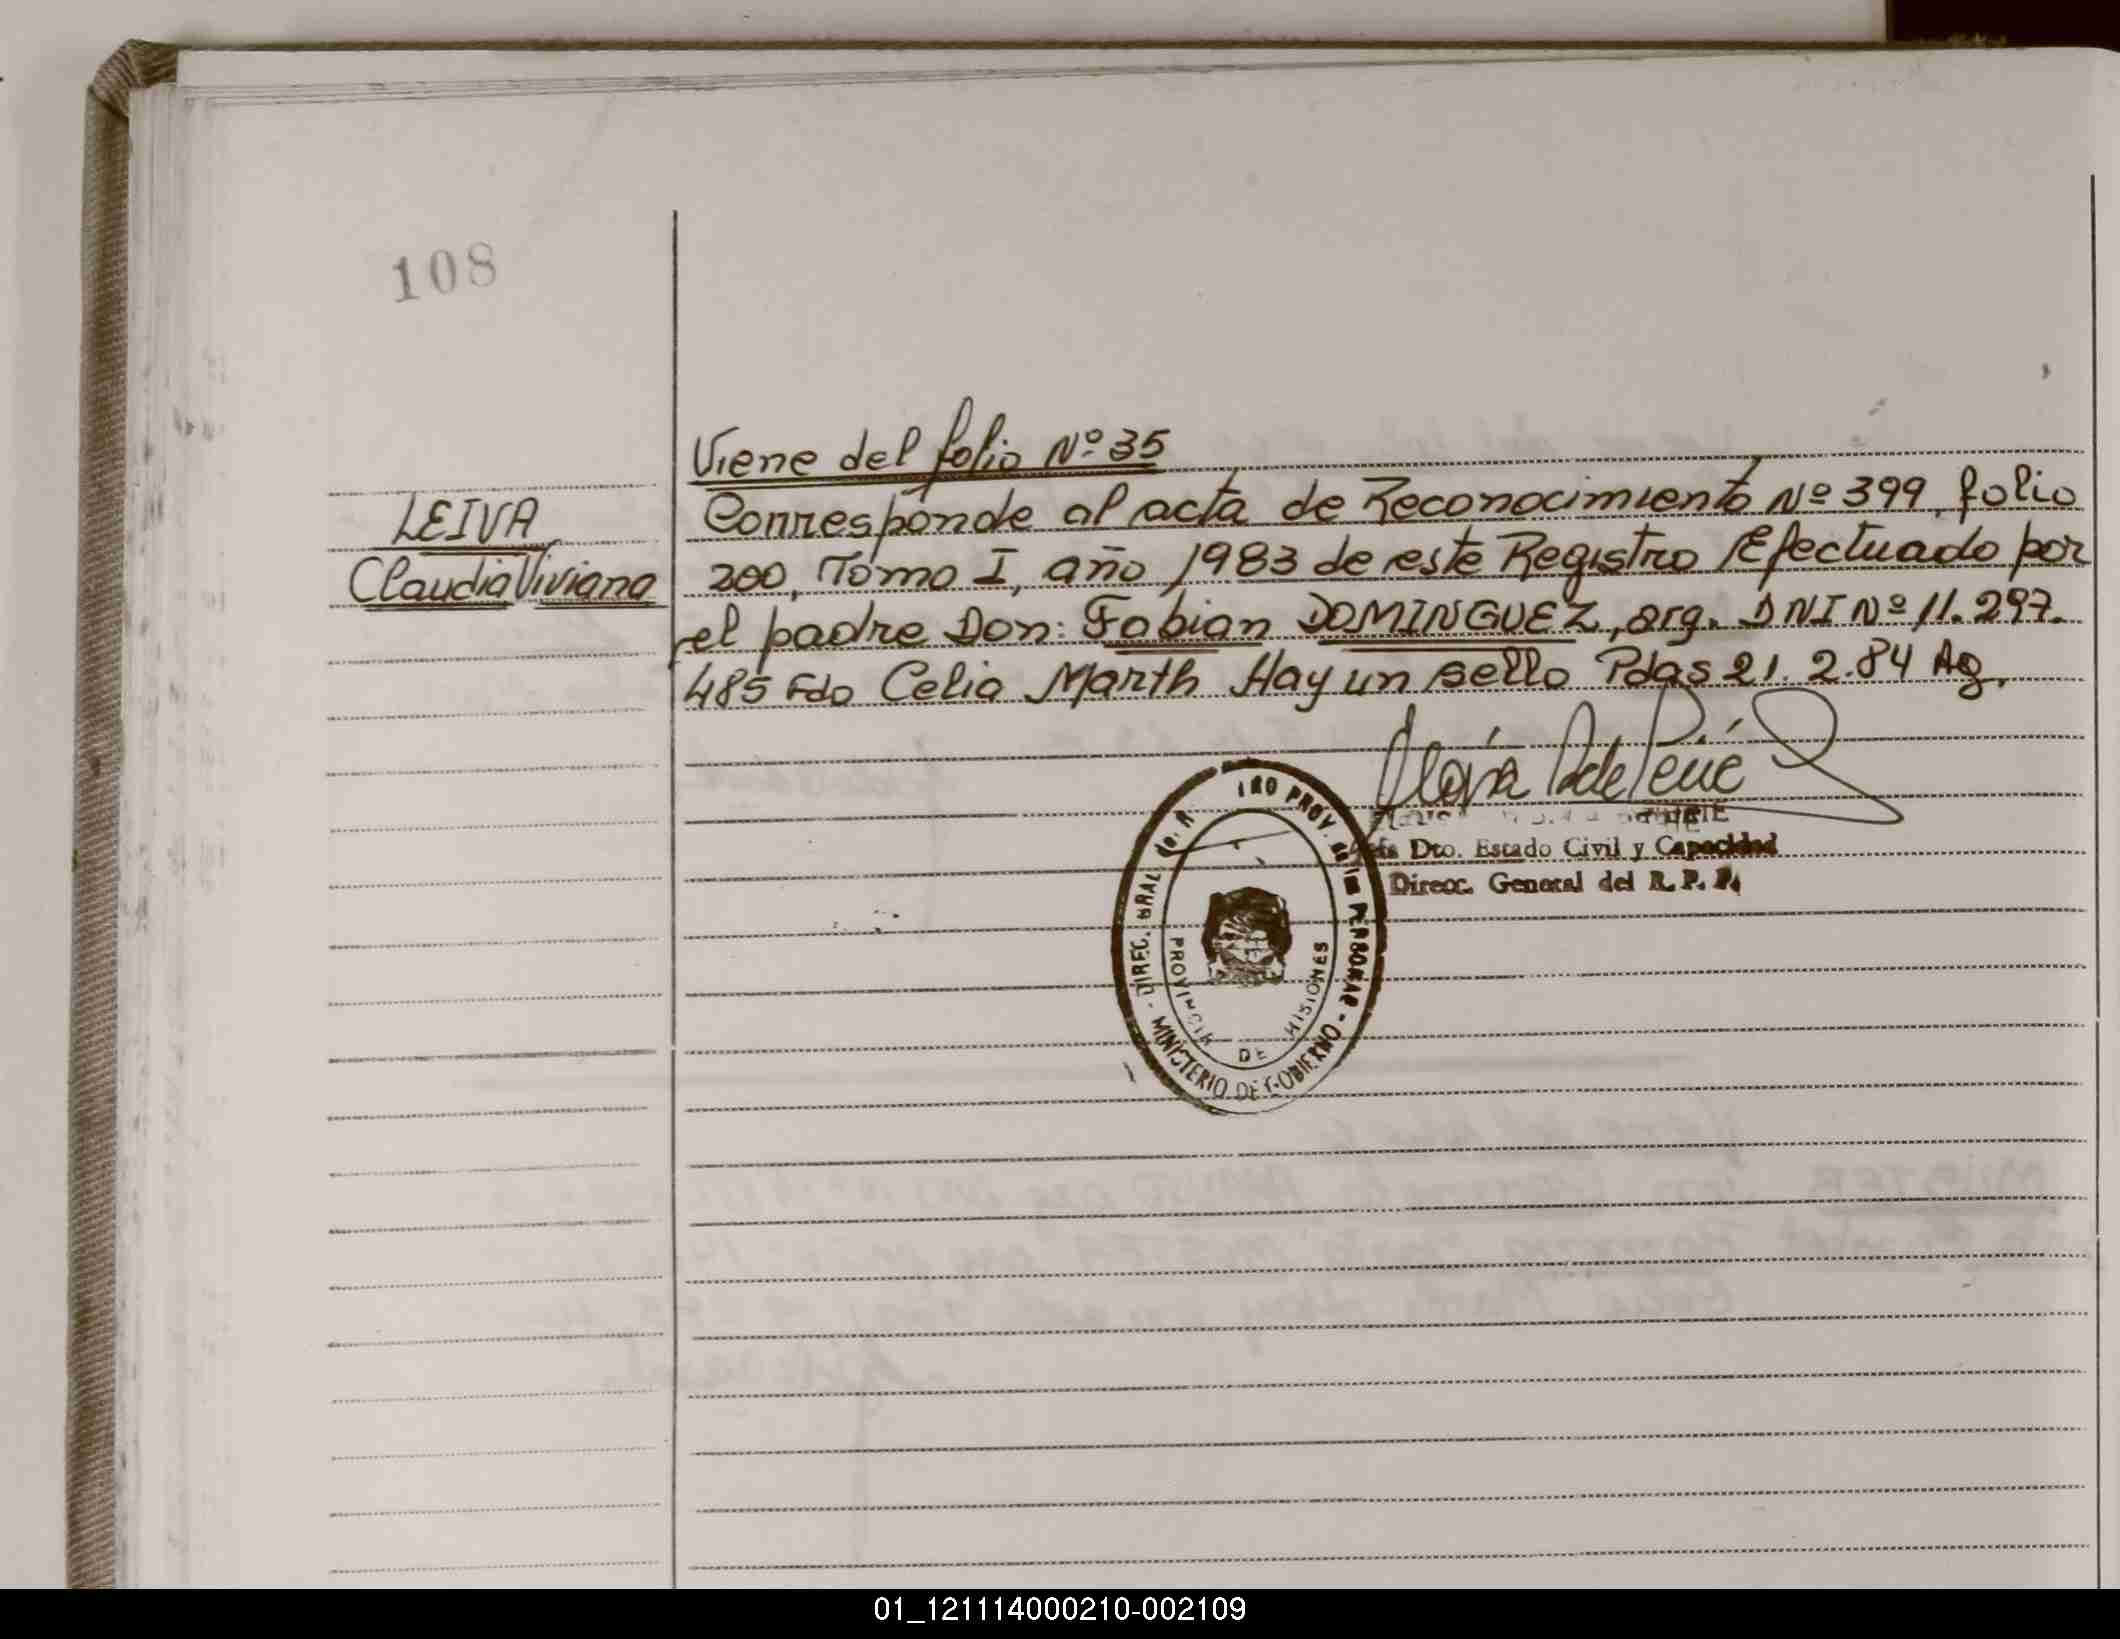 108
Viene del folio Nº 35
LEIVA
Claudia Viviana
Corresponde al acta de Reconocimiento Nº 399, folio
200, Tomo I, año 1983 de este Registro Efectuado por
el padre Don: Fabian DOMINGUEZ, arg. DNI Nº 11.297.
485 Fdo Celia Marth Hay un sello Pdas 21.2.84 Ag.
Dto. Estado Civil y Capacidad
Direcc. General del R. P. P.
DIREC. GRAL de. R PROV. PERSONAS - MINISTERIO DE GOBIERNO -
PROVINCIA DE MISIONES
01_121114000210-002109